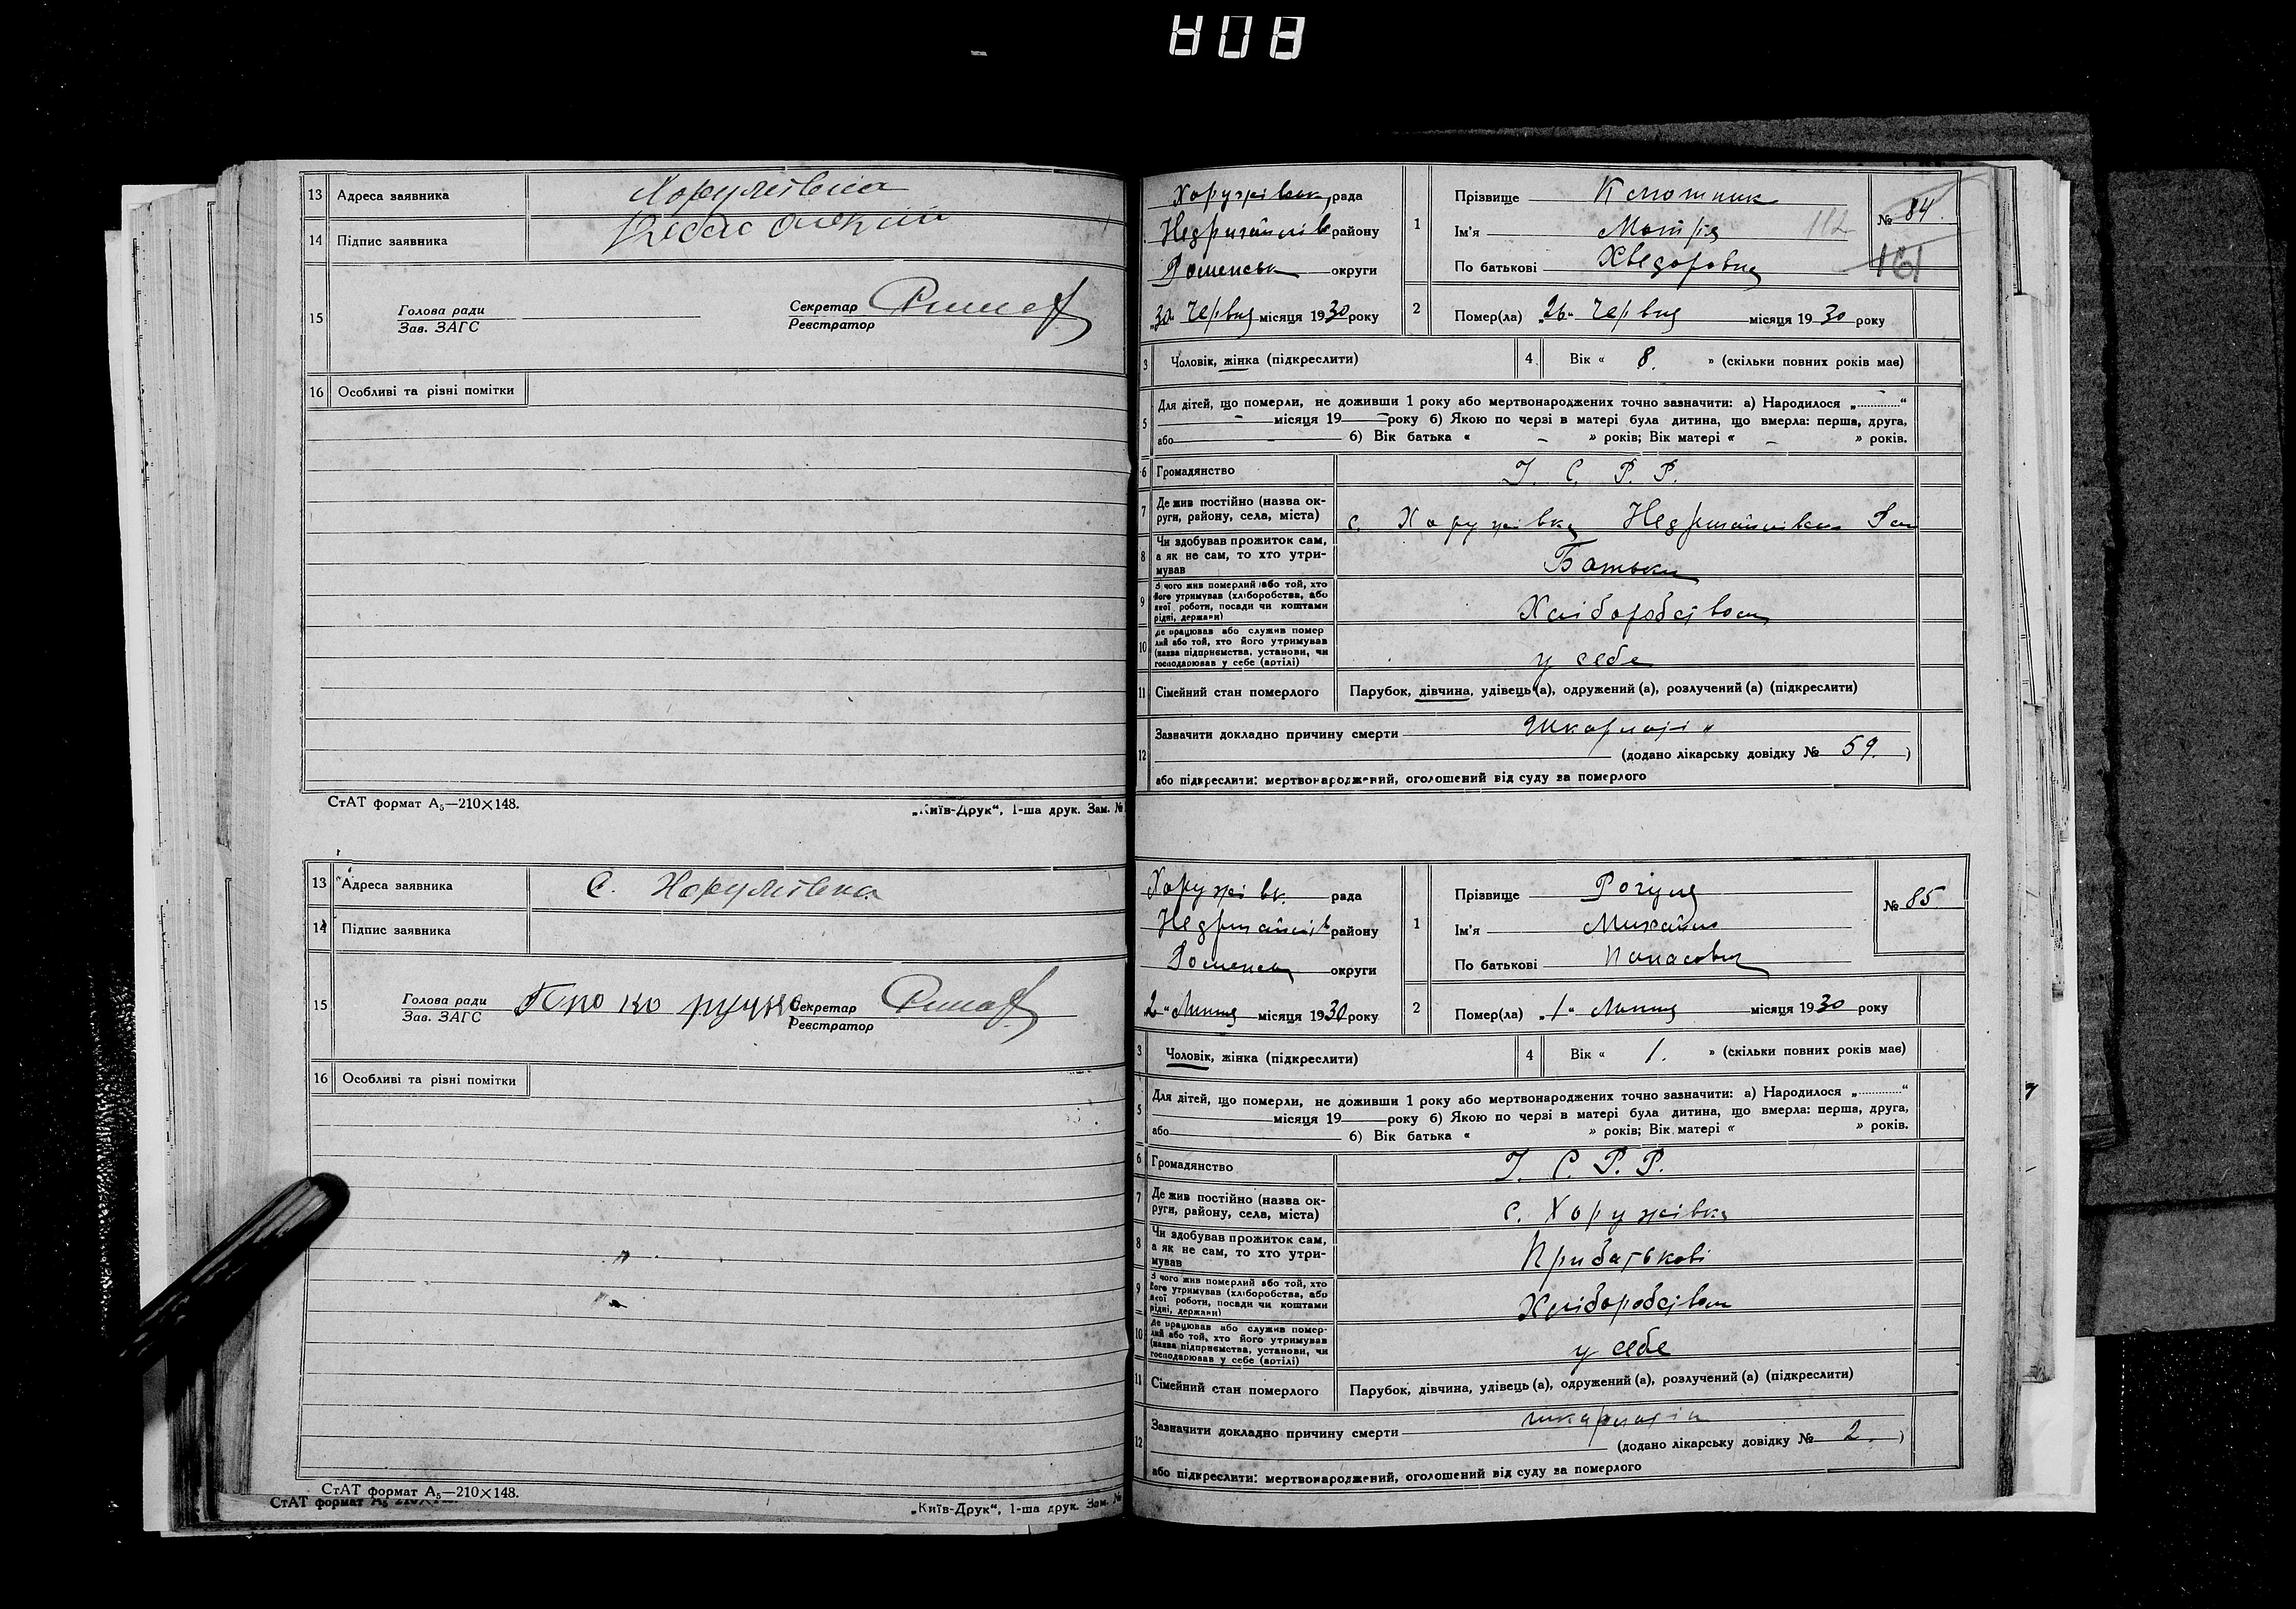 808
13 Адреса заявника Хоружівка
14 Підпис заявника
15 Голова ради
Зав. ЗАГС
Секретар
Реєстратор
16 Особливі та різні помітки
СтАТ формат А₅—210×148.
„Київ-Друк“, 1-ша друк. Зам. №
13 Адреса заявника С. Хоружівка
14 Підпис заявника
15 Голова ради
Зав. ЗАГС
Секретар
Реєстратор
16 Особливі та різні помітки
СтАТ формат А₅—210×148.
СтАТ формат А₅ 210×148.
„Київ-Друк“, 1-ша друк. Зам. №
Хоружівськ рада
Недригайлів району
Роменськ округи
„30“ Червня місяця 1930 року
1 Прізвище
Ім'я Мотря
По батькові Хведоровна
№ 84
112
161
2 Помер(ла) „26“ Червня місяця 1930 року
3 Чоловік, жінка (підкреслити)
4 Вік « 8. » (скільки повних років має)
5 Для дітей, що померли, не доживши 1 року або мертвонароджених точно зазначити: а) Народилося „............“
– місяця 19 – року б) Якою по черзі в матері була дитина, що вмерла: перша, друга,
або – б) Вік батька « – » років; Вік матері « – » років.
6 Громадянство У. С. Р. Р.
7 Де жив постійно (назва ок-
руги, району, села, міста) с. Хоружівка Недригайлівськ Ром
8 Чи здобував прожиток сам,
а як не сам, то хто утри-
мував Батьки
9 З чого жив померлий або той, хто
його утримував (хліборобства, або
якої роботи, посади чи коштами
рідні, держави) Хліборобством
10 Де працював або служив помер
лий або той, хто його утримував
(назва підприємства, установи, чи
господарював у себе (артілі) у себе
11 Сімейний стан померлого Парубок, дівчина, удівець(а), одружений(а), розлучений(а) (підкреслити)
12 Зазначити докладно причину смерти Шкарлатін
(додано лікарську довідку № 59.)
або підкреслити: мертвонароджений, оголошений від суду за померлого
Хоружівк. рада
Недригайлів району
Роменськ округи
2 “ Липня місяця 1930 року
1 Прізвище Рогуля
Ім'я Михайло
По батькові Панасович
№ 85
2 Помер(ла) „1“ Липня місяця 1930 року
3 Чоловік, жінка (підкреслити)
4 Вік « 1. » (скільки повних років має)
5 Для дітей, що померли, не доживши 1 року або мертвонароджених точно зазначити: а) Народилося „............“
місяця 19 року б) Якою по черзі в матері була дитина, що вмерла: перша, друга,
або б) Вік батька « » років; Вік матері « » років.
6 Громадянство У. С. Р. Р.
7 Де жив постійно (назва ок-
руги, району, села, міста) с. Хоружівка
8 Чи здобував прожиток сам,
а як не сам, то хто утри-
мував Прибатькові
9 З чого жив померлий або той, хто
його утримував (хліборобства, або
якої роботи, посади чи коштами
рідні, держави) Хліборобством
10 Де працював або служив помер-
лий або той, хто його утримував
(назва підприємства, установи, чи
господарював у себе (артілі) у себе
11 Сімейний стан померлого Парубок, дівчина, удівець(а), одружений(а), розлучений(а) (підкреслити)
12 Зазначити докладно причину смерти шкарлатін
(додано лікарську довідку № 2.)
або підкреслити: мертвонароджений, оголошений від суду за померлого